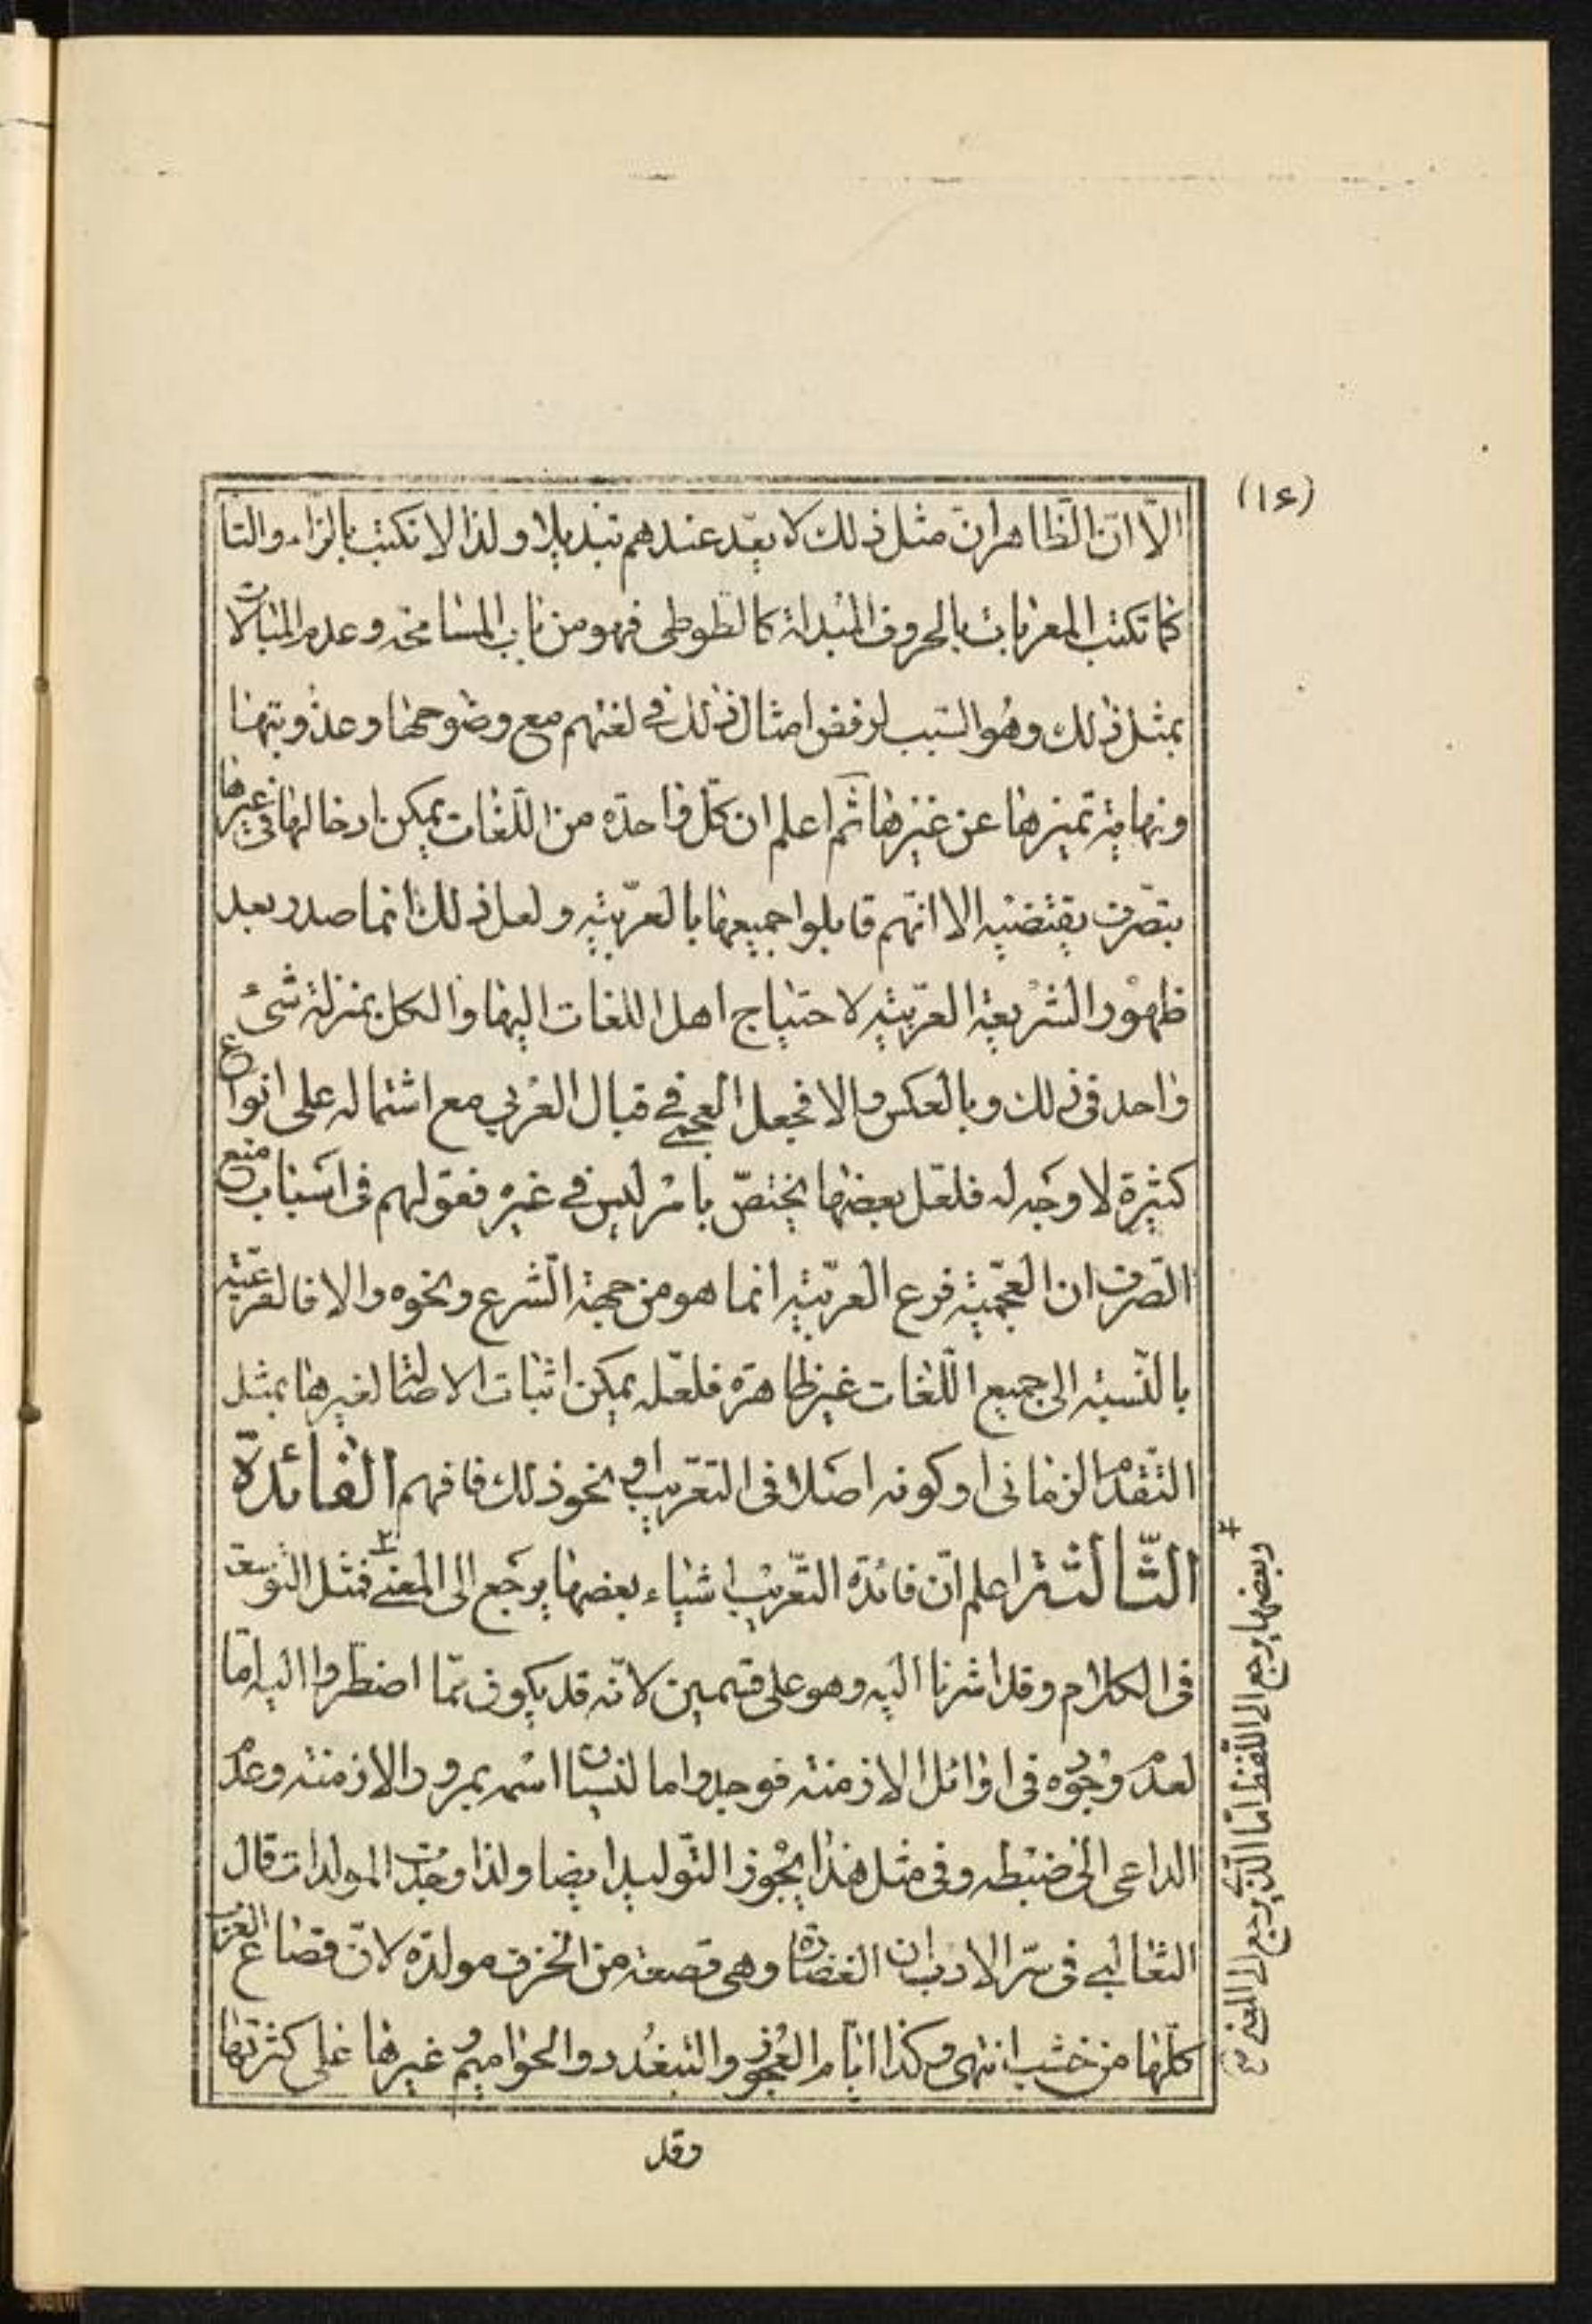 (١۶)
الّا انّ الظّاهر انّ مثل ذلك لا يعّد عندهم تبديلا ولذا لا تكتب بالزاء والتا
كما تكتب المعربات بالحروف المبدلة كالطوطى فهو من باب المسامحة وعدم المبالات
بمثل ذلك وهُو السّبب لرفض امثال ذلك فى لغتهم مع وضوحها وعذوبتها
ونهاية تميزها عن غيرها ثم اعلم ان كلّ واحدة من اللّغات يمكن ادخالها فى غيرها
بتصّرف يقتضيه الا انّهم قابلوا جميعها بالعربّية ولعل ذلك انما صدر بعد
ظهوْر الشريعة العربّية لاحتياج اهل اللغات اليها والكل بمنزلة شئ
واحد فى ذلك وبالعكس والا فجعل العجمى فى قبال العربي مع اشتماله على انواع
كثيرة لا وجه له فلعّل بعضها يختصّ بامر ليس فى غيره فقولهم فى اسباب منع
الصّرف ان العجّمية فرع العربّية انما هو من جهة الشّرع ونحوه والا فالعربّية
بالنّسبة الى جميع اللّغات غير ظاهرة فلعّله يمكن اثبات الاصالة لغيرها بمثل
التّقدم الزمانى او كونه اصلا فى التعّريب او نحو ذلك فافهم الفائدة
الثّالثة اعلم انّ فائدة التّعريب اشياء بعضها يرجع الى المعنى ٢ فمثل التوسعة
فى الكلام وقد اشرنا اليه وهو على قسمين لانّه قد يكون ممّا اضطروا اليه امّا
لعدم وجوده فى اوائل الازمنة فوجد واما لنسيان اسمه بمرور الازمنة وعدم
الداعى الى ضبطه وفى مثل هذا يجوز التّوليد ايضا ولذا وجدت المولدات قال
الثعالبي فى سّر الادب ان الغضارة وهى قصعة من الخزف مولدة لانّ قصاع العرب
كلّها من خشب انتهى وكذا ايّام العجُوز والتبغدُد والحواميم وغيرها على كثرتها
وقد
٢ وبعضها يرجع الى اللّفظ امّا الّذى يرجع الى المعنى